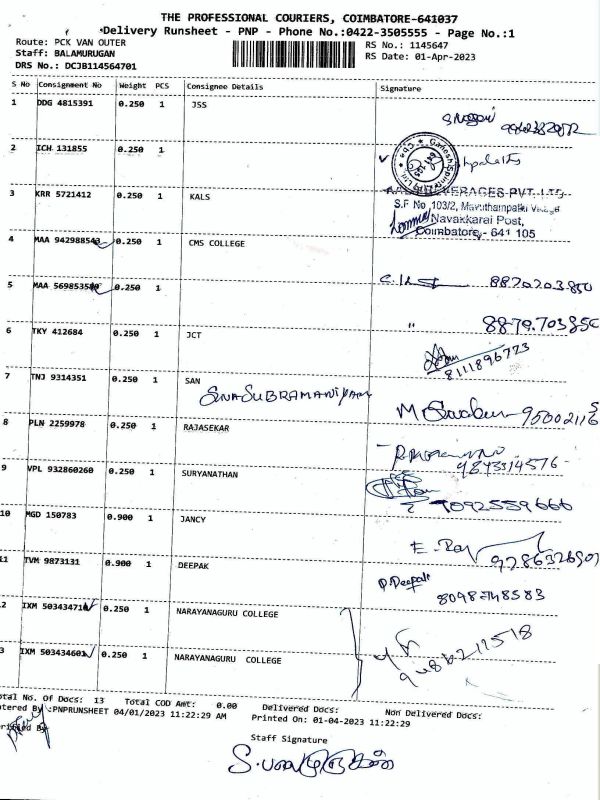 THE PROFESSIONAL COURIERS, COIMBATORE-641037
Delivery Runsheet - PNP - Phone No.:0422-3505555 - Page No.:1
Route: PCK VAN OUTER
Staff: BALAMURUGAN
DRS No.: DCJB114564701
RS No.: 1145647
RS Date: 01-Apr-2023
S No Consignment No Weight PCS Consignee Details Signature
1 DDG 4815391 0.250 1 JSS
2 ICH 131855 0.250 1
3 KRR 5721412 0.250 1 KALS
BEVERAGES PVT. LTD
S.F No 103/2, Mavuthampathi Village
Navakkarai Post,
Coimbatore - 641 105
4 MAA 942988543 0.250 1 CMS COLLEGE
8870703850
5 MAA 0.250 1
" 8870703850
6 TKY 412684 0.250 1 JCT
8111896773
7 TNJ 9314351 0.250 1 SAN
SIVASUBRAMANIYAM
950002116
8 PLN 2259978 0.250 1 RAJASEKAR
9843314576
9 VPL 932860260 0.250 1 SURYANATHAN
7092559666
10 MGD 150783 0.900 1 JANCY
E. Raj
11 TVM 9873131 0.900 1 DEEPAK
P. Deepak
8098748583
2 IXM 503434710 0.250 1 NARAYANAGURU COLLEGE
3 IXM 503434601 0.250 1 NARAYANAGURU COLLEGE
otal No. Of Docs: 13 Total COD Amt: 0.00 Delivered Docs: Non Delivered Docs:
ntered By :PNPRUNSHEET 04/01/2023 11:22:29 AM Printed On: 01-04-2023 11:22:29
Staff Signature
S. பாலமுருகன்